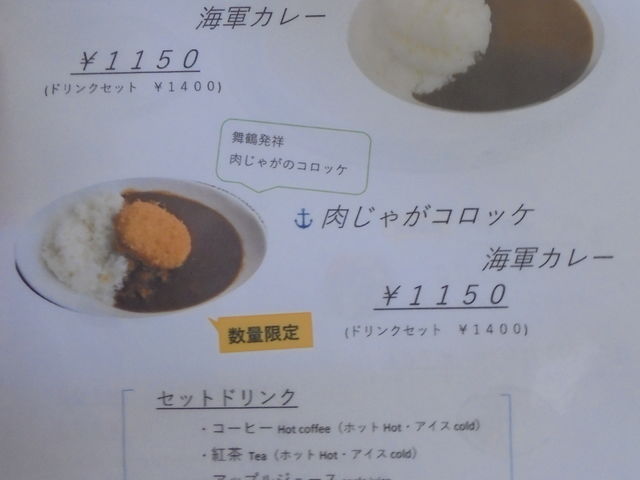 海軍カレー
￥１１５０
(ドリンクセット ￥１４００)
舞鶴発祥
肉じゃがのコロッケ
⚓肉じゃがコロッケ
海軍カレー
￥１１５０
数量限定
(ドリンクセット ￥１４００)
セットドリンク
・コーヒー Hot coffee（ホット Hot・アイス cold）
・紅茶 Tea（ホット Hot・アイス cold）
アップルジュース